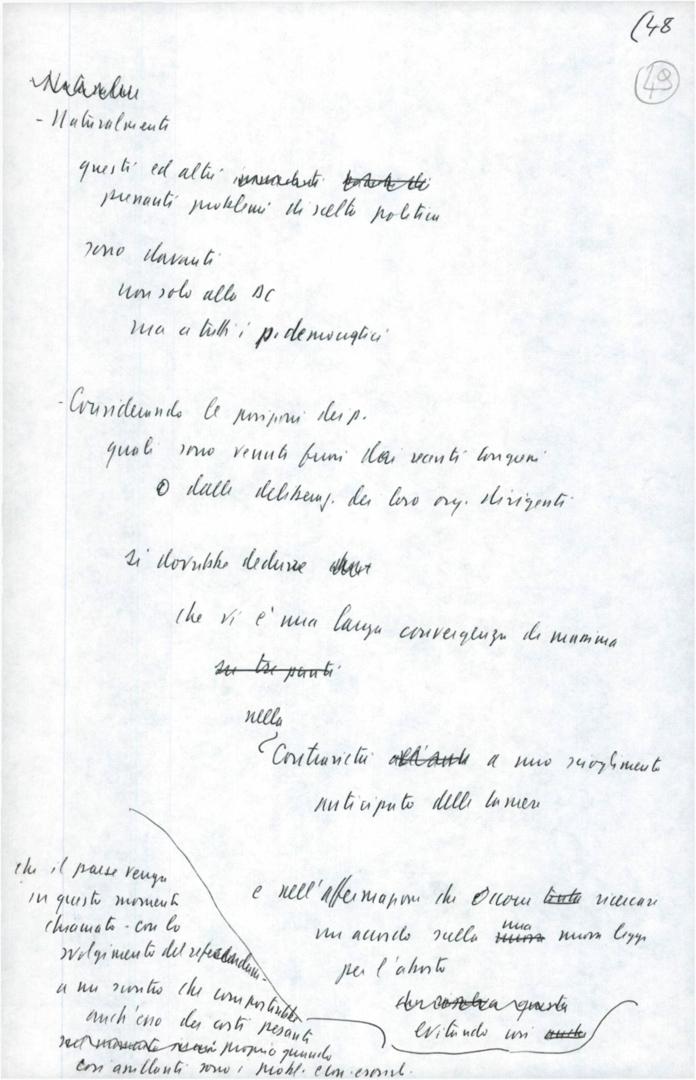 (48
49
Naturalme
- Naturalmente
questi ed altri
pressanti problemi di scelta politica
sono davanti
non solo alla DC
ma a tutti i p. democratici
- Considerando le posizioni dei p.
quali sono venute fuori dai recenti congressi
o dalle deliberaz. dei loro org. dirigenti
si dovrebbe dedurre
che vi è una larga convergenza di massima
su tre punti
nella
Contrarietà a uno scioglimento
anticipato delle Camere
e nell'affermazione che occorre tenta ricercare
un accordo sulla una nuova legge
per l'aborto
questa
evitando così anche
che il paese venga
in questo momento
chiamato - con lo
svolgimento del referendum -
a un scontro che comporterebbe
anch'esso dei costi pesanti
proprio quando
così assillanti sono i probl. econ.